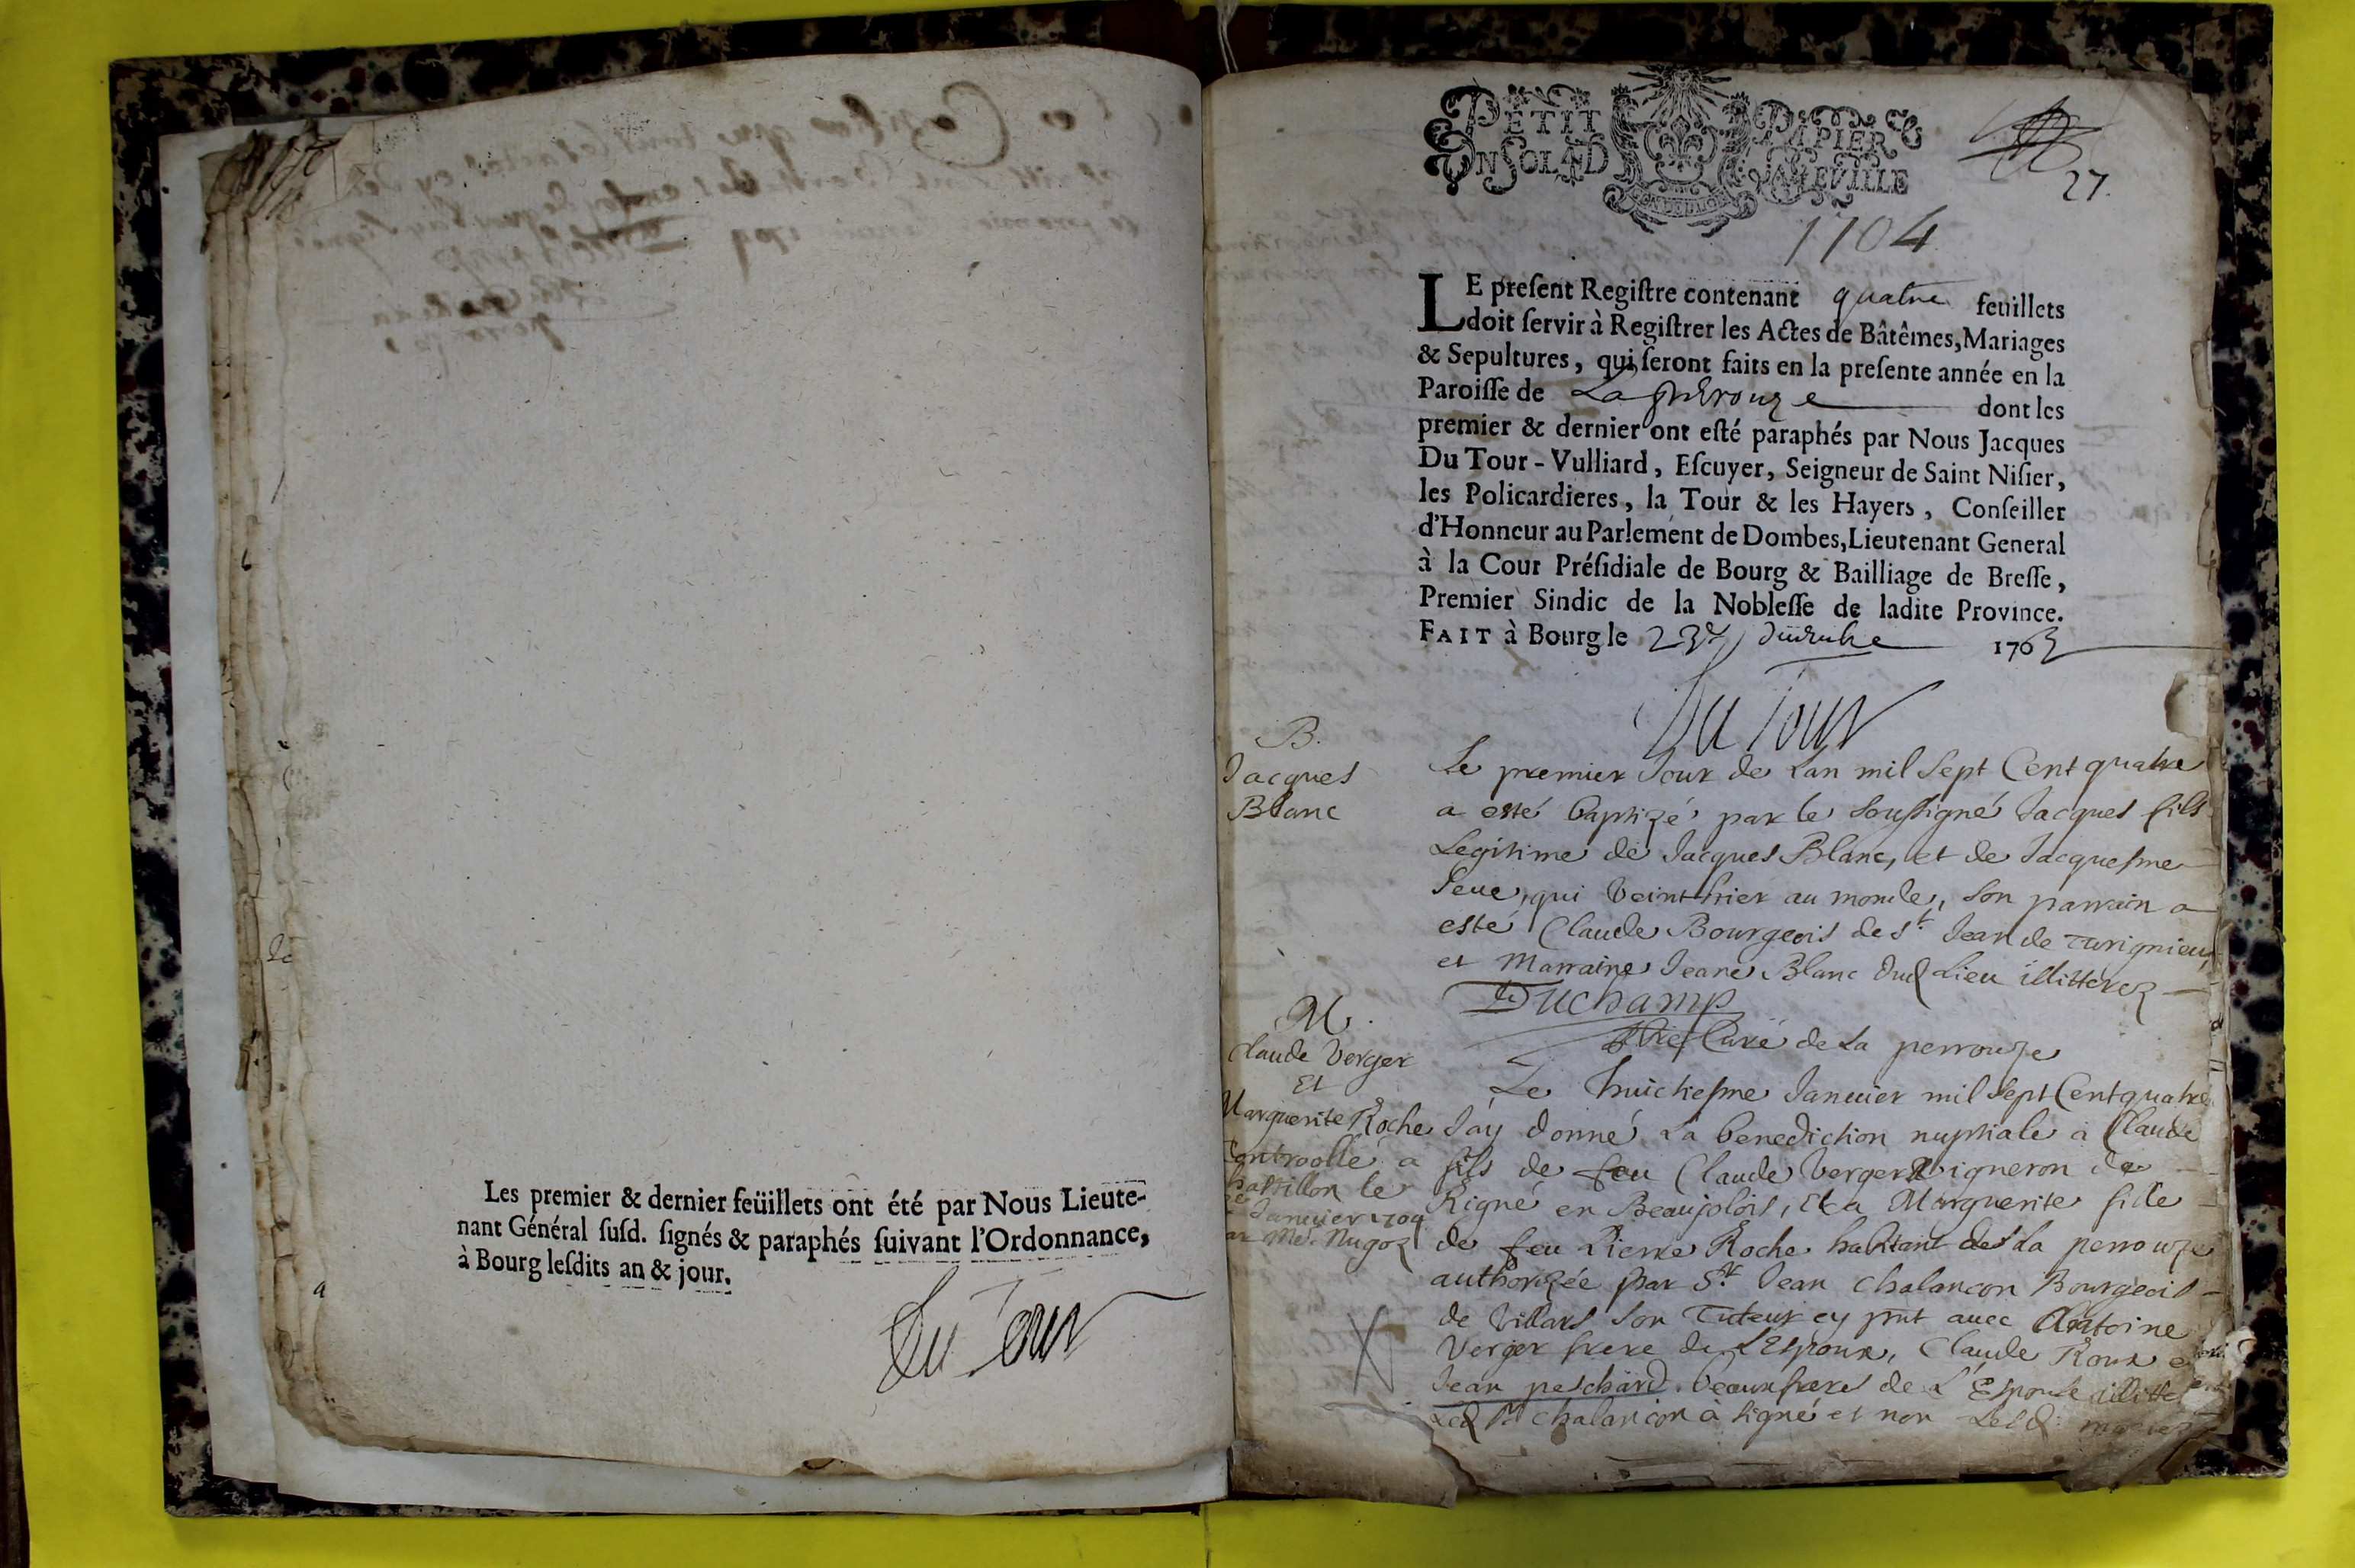 Les premier & dernier feüillets ont été par Nous Lieute-
nant Général ſuſd. ſignés & paraphés ſuivant l'Ordonnance,
à Bourg leſdits an & jour.
Du Tour
PETIT PAPIER
UN SOL 4 D LA FEVILLE
27.
1704
LE preſent Regiſtre contenant quatre feuillets
doit ſervir à Regiſtrer les Actes de Bâtêmes, Mariages
& Sepultures, qui ſeront faits en la preſente année en la
Paroiſſe de La perouze dont les
premier & dernier ont eſté paraphés par Nous Jacques
Du Tour-Vulliard, Eſcuyer, Seigneur de Saint Niſier,
les Policardieres, la Tour & les Hayers, Conſeiller
d'Honneur au Parlement de Dombes, Lieutenant General
à la Cour Préſidiale de Bourg & Bailliage de Breſſe,
Premier Sindic de la Nobleſſe de ladite Province.
FAIT à Bourg le 23 1703
Du Tour
B.
Jacques
Blanc
Le premier Jour de Lan mil Sept Cent quatre
a esté baptizé par le Soussigné Jacques fils
Legitime de Jacques Blanc, et de Jacquesme
Seue, qui veint hier au monde, Son parrain a
esté Claude Bourgeois de St Jean de Turignieu,
et Marraine Jeane Blanc dud Lieu illitterez
Duchamp
ptre Curé de La perrouze
M.
Claude Verger
Et
Marguerite Roche
Controollé a
Chastillon le
Janvier 1704
par Me. Nugoz
Le huictiesme Januier mil Sept Cent quatre
J'ay donné La benediction nuptiale a Claude
fils de feu Claude Verger Vigneron de
Rigné en Beaujolois, Et a Marguerite fille
de feu Pierre Roche habitant de La perrouze
authorizée par Sr. Jean Chalancon Bourgeois
de Villars Son Tuteur cy pnt auec Antoine
Verger frere de L'Espoux, Claude Roux et
Jean peschard beaux freres de L'Espouse
Led Sr Chalancon à Signé et non Lesd.